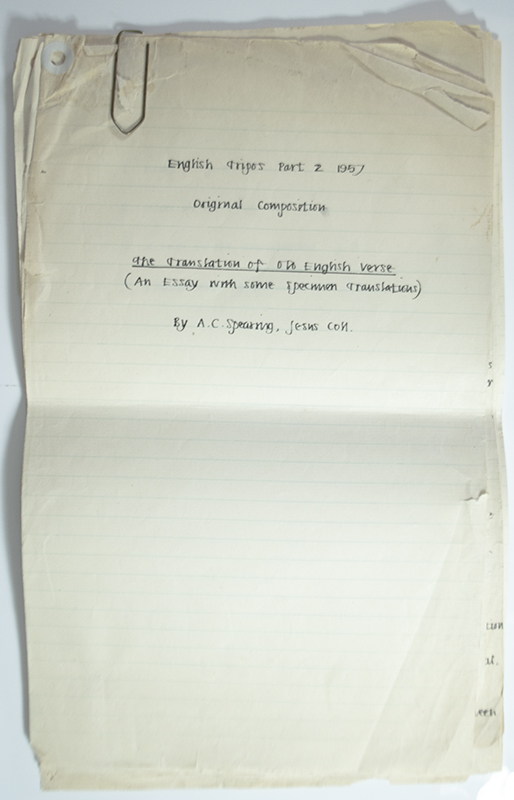 English Tripos Part 2 1957
Original Composition
The Translation of Old English Verse
(An Essay with some Specimen Translations)
By A.C. Spearing, Jesus Coll.